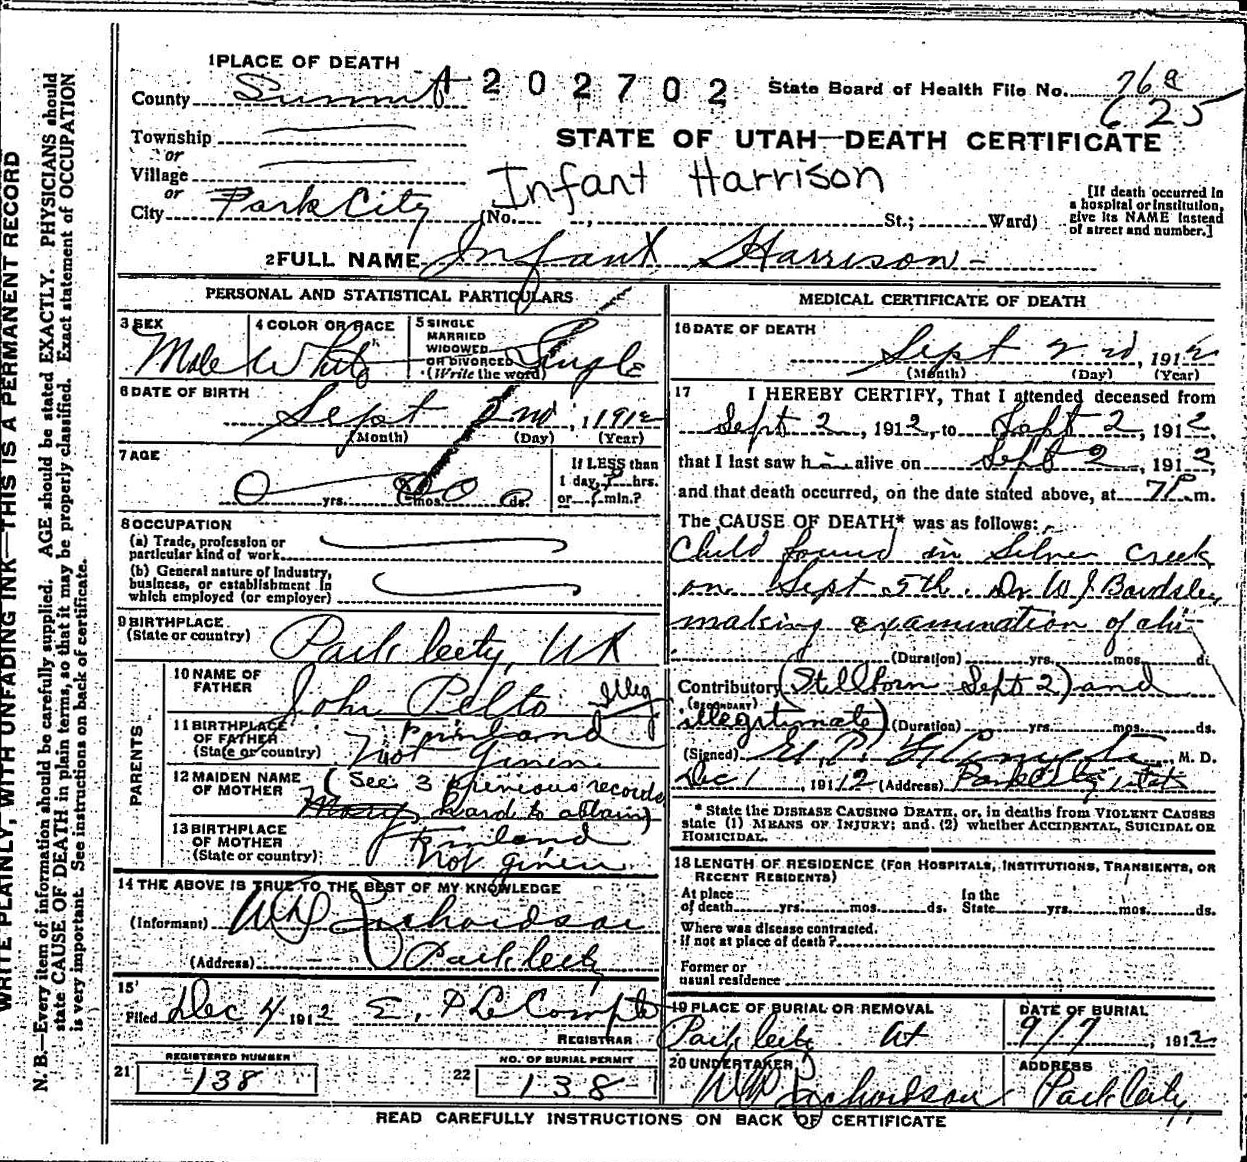 WRITE PLAINLY, WITH UNFADING INK—THIS IS A PERMANENT RECORD
N. B.—Every item of information should be carefully supplied. AGE should be stated EXACTLY. PHYSICIANS should
state CAUSE OF DEATH in plain terms, so that it may be properly classified. Exact statement of OCCUPATION
is very important. See instructions on back of certificate.
1 PLACE OF DEATH
County Summit
1202702
State Board of Health File No. 76a
625
Township
or
STATE OF UTAH—DEATH CERTIFICATE
Village
or
Infant Harrison
City Park City (No. , St.; Ward)
[If death occurred in
a hospital or institution,
give its NAME instead
of street and number.]
2 FULL NAME Infant Harrison
PERSONAL AND STATISTICAL PARTICULARS
3 SEX Male
4 COLOR OR RACE White
5 SINGLE
MARRIED
WIDOWED
OR DIVORCED
(Write the word) Single
6 DATE OF BIRTH
Sept 2nd, 1912
(Month) (Day) (Year)
7 AGE
0 yrs. 0 mos. 0 ds.
If LESS than
1 day, ? hrs.
or ? min.?
8 OCCUPATION
(a) Trade, profession or
particular kind of work
(b) General nature of Industry,
business, or establishment in
which employed (or employer)
9 BIRTHPLACE
(State or country) Park City, Ut
PARENTS
10 NAME OF
FATHER John Pelto Illeg
11 BIRTHPLACE
OF FATHER
(State or country) Finland
Not Given
12 MAIDEN NAME
OF MOTHER (See 3 previous records
Mary hard to obtain)
13 BIRTHPLACE
OF MOTHER
(State or country) Finland
Not given
14 THE ABOVE IS TRUE TO THE BEST OF MY KNOWLEDGE
(Informant) W
(Address) Park City
15
Filed Dec 4 1912 E. P LeCompte
REGISTRAR
21 REGISTERED NUMBER
138
22 NO. OF BURIAL PERMIT
138
MEDICAL CERTIFICATE OF DEATH
16 DATE OF DEATH
Sept 2nd, 1912
(Month) (Day) (Year)
17 I HEREBY CERTIFY, That I attended deceased from
Sept 2, 1912, to Sept 2, 1912,
that I last saw him alive on Sept 2, 1912,
and that death occurred, on the date stated above, at 7P m.
The CAUSE OF DEATH* was as follows:
Child found in Silver Creek
on Sept 5th. Dr. W J Bardsley
making examination of chi-
(Duration) yrs. mos. ds.
Contributory (Stillborn Sept 2) and
(SECONDARY)
illegitimate) (Duration) yrs. mos. ds.
(Signed) M. D.
Dec 1, 1912 (Address) Park City Utah
* State the DISEASE CAUSING DEATH, or, in deaths from VIOLENT CAUSES
state (1) MEANS OF INJURY; and (2) whether ACCIDENTAL, SUICIDAL OR
HOMICIDAL.
18 LENGTH OF RESIDENCE (FOR HOSPITALS, INSTITUTIONS, TRANSIENTS, OR
RECENT RESIDENTS)
At place
of death yrs. mos. ds.
In the
State yrs. mos. ds.
Where was disease contracted,
if not at place of death?
Former or
usual residence
19 PLACE OF BURIAL OR REMOVAL
Park City Ut
DATE OF BURIAL
9/7, 1912
20 UNDERTAKER
W
ADDRESS
Park City
READ CAREFULLY INSTRUCTIONS ON BACK OF CERTIFICATE